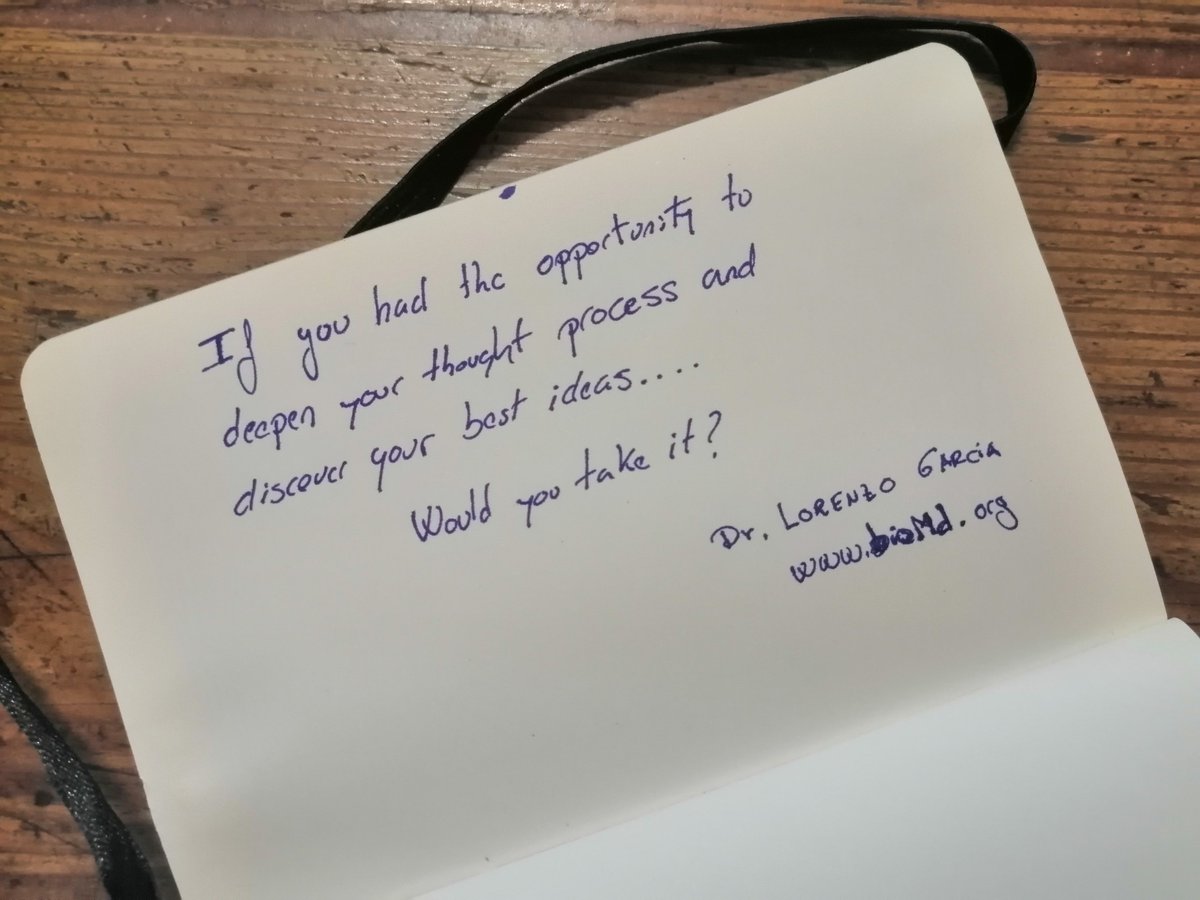 If you had the opportunity to
deepen your thought process and
discover your best ideas....
Would you take it?
Dr. LORENZO GARCIA
www.bioMd.org